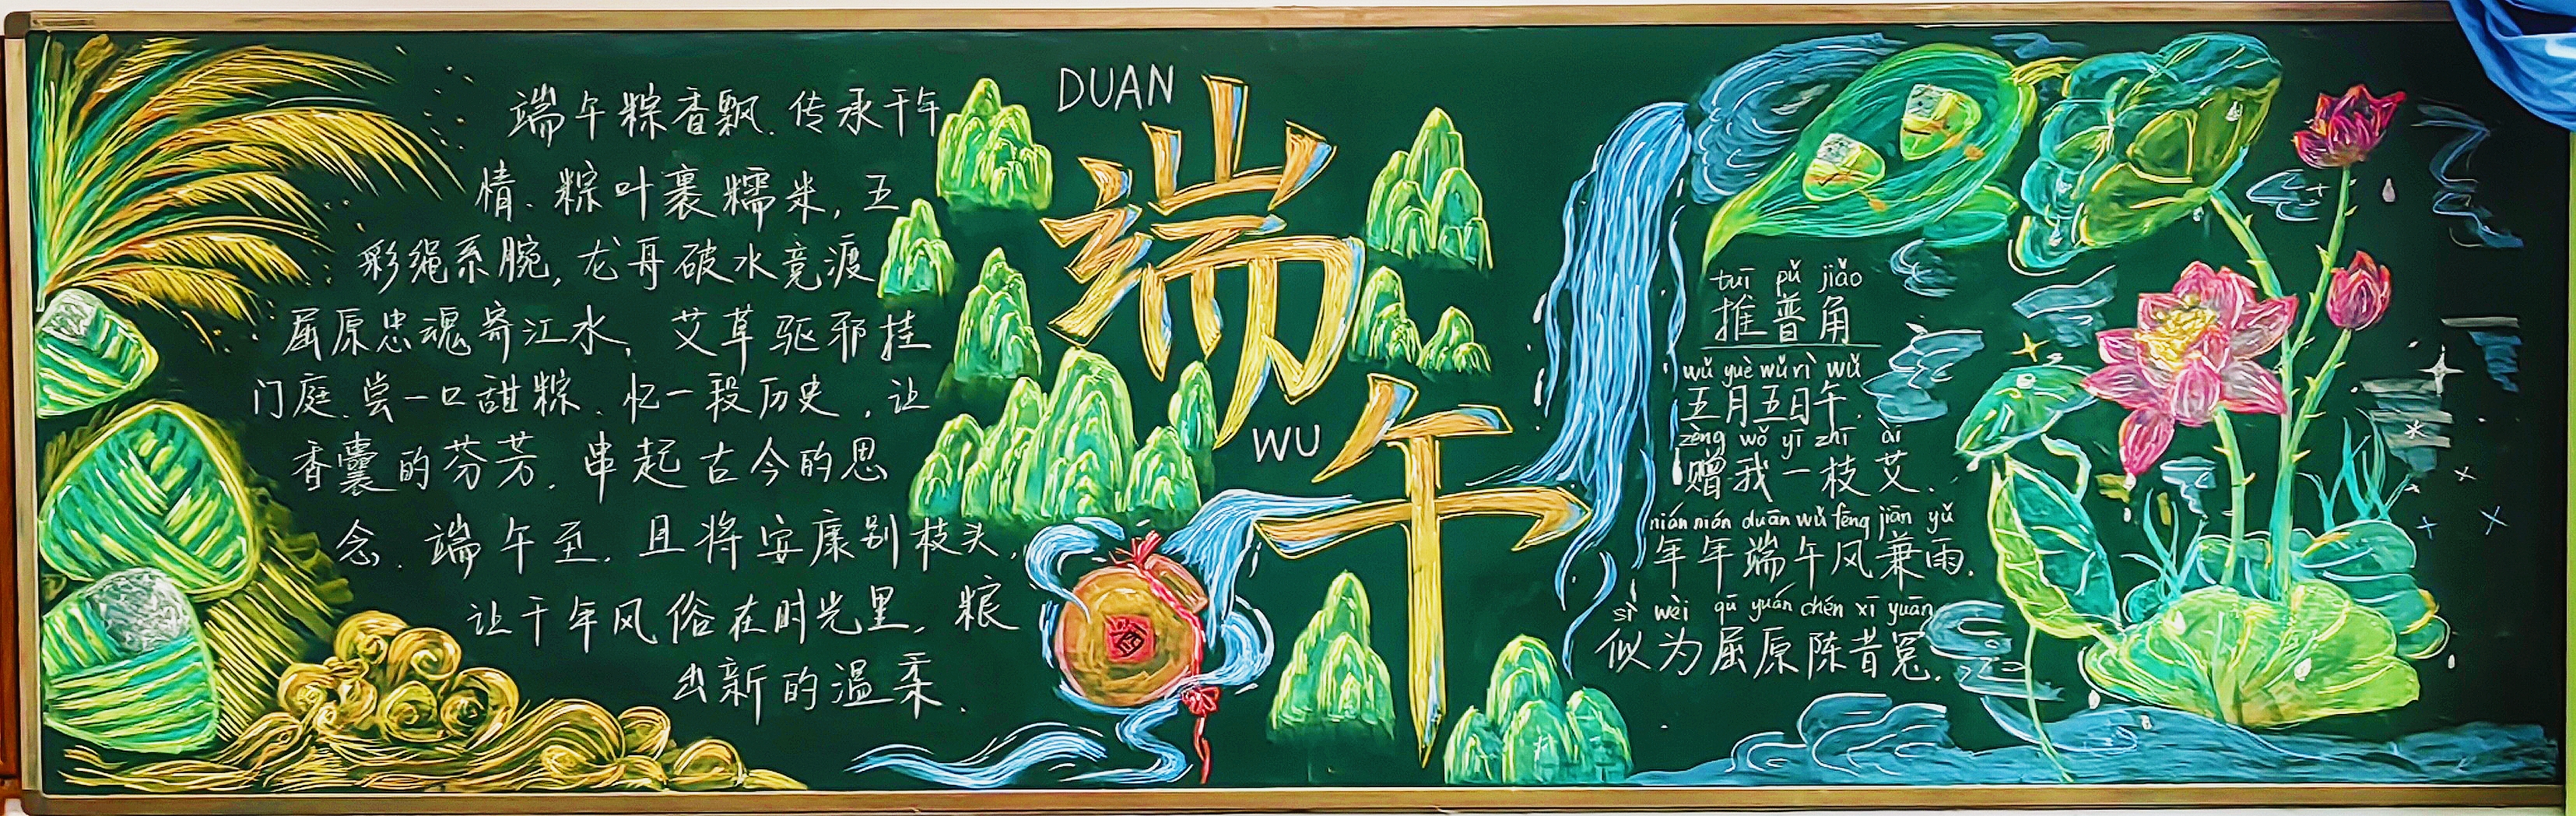 端午粽香飘.传承千年
情、粽叶裹糯米,五
彩绳系腕,龙舟破水竞渡
屈原忠魂寄江水、艾草驱邪挂
门庭.尝一口甜粽、忆一段历史,让
香囊的芬芳.串起古今的思
念.端午至.且将安康别枝头,
让千年风俗在时光里,粮
出新的温柔.
DUAN
端
WU
午
酒
tuī pǔ jiǎo
推普角
wǔ yuè wǔ rì wǔ
五月五日午.
zèng wǒ yī zhī ài
赠我一枝艾.
nián nián duān wǔ fēng jiān yǔ
年年端午风兼雨.
sì wèi qū yuán chén xī yuān
似为屈原陈昔冤.